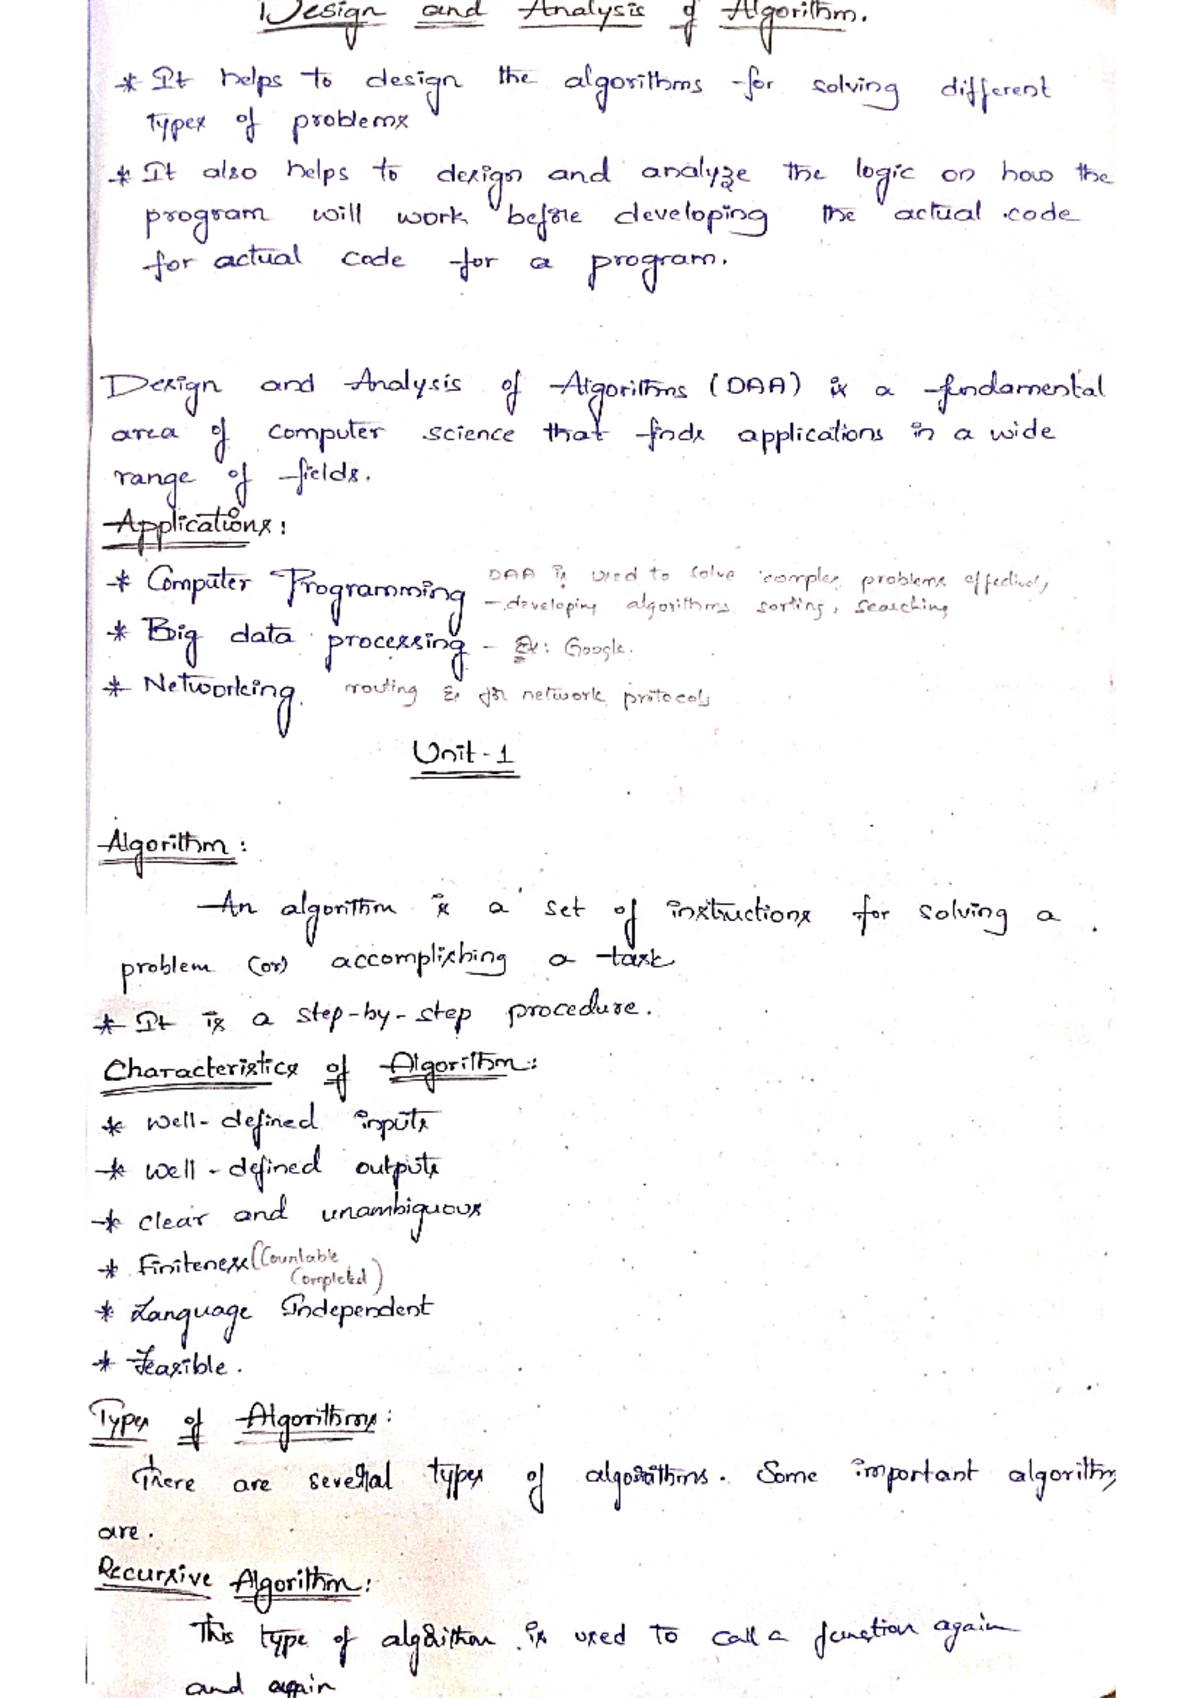 Design and Analysis of Algorithm.
* It helps to design the algorithms for solving different
types of problems
* It also helps to design and analyze the logic on how the
program will work before developing the actual code
for actual code for a program.
Design and Analysis of Algorithms (DAA) is a fundamental
area of computer science that finds applications in a wide
range of fields.
Applications:
* Computer Programming DAA is used to solve complex problems effectively
- developing algorithms sorting, searching
* Big data processing - Ex: Google.
* Networking. routing & for network protocols
Unit-1
Algorithm:
An algorithm is a set of instructions for solving a
problem (or) accomplishing a task
* It is a step-by-step procedure.
Characteristics of Algorithm:
* well-defined inputs
* well-defined outputs
* clear and unambiguous
* Finiteness (Countable
Completed)
* Language Independent
* Feasible.
Types of Algorithms:
There are several types of algorithms. Some important algorithms
are.
Recursive Algorithm:
This type of algorithm is used to call a function again
and again